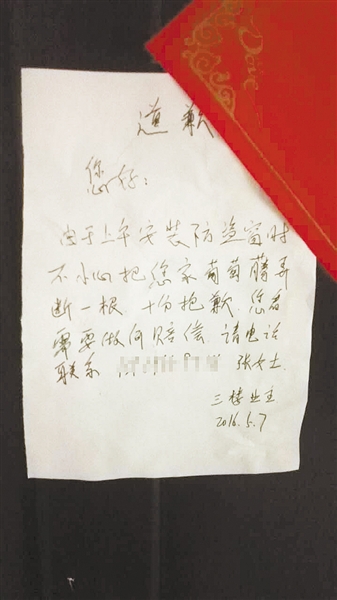 道歉
您好：
由于上午安装防盗窗时
不小心把您家葡萄藤弄
断一根 十分抱歉.您若
需要做何赔偿 请电话
联系 张女士.
三楼业主
2016.5.7